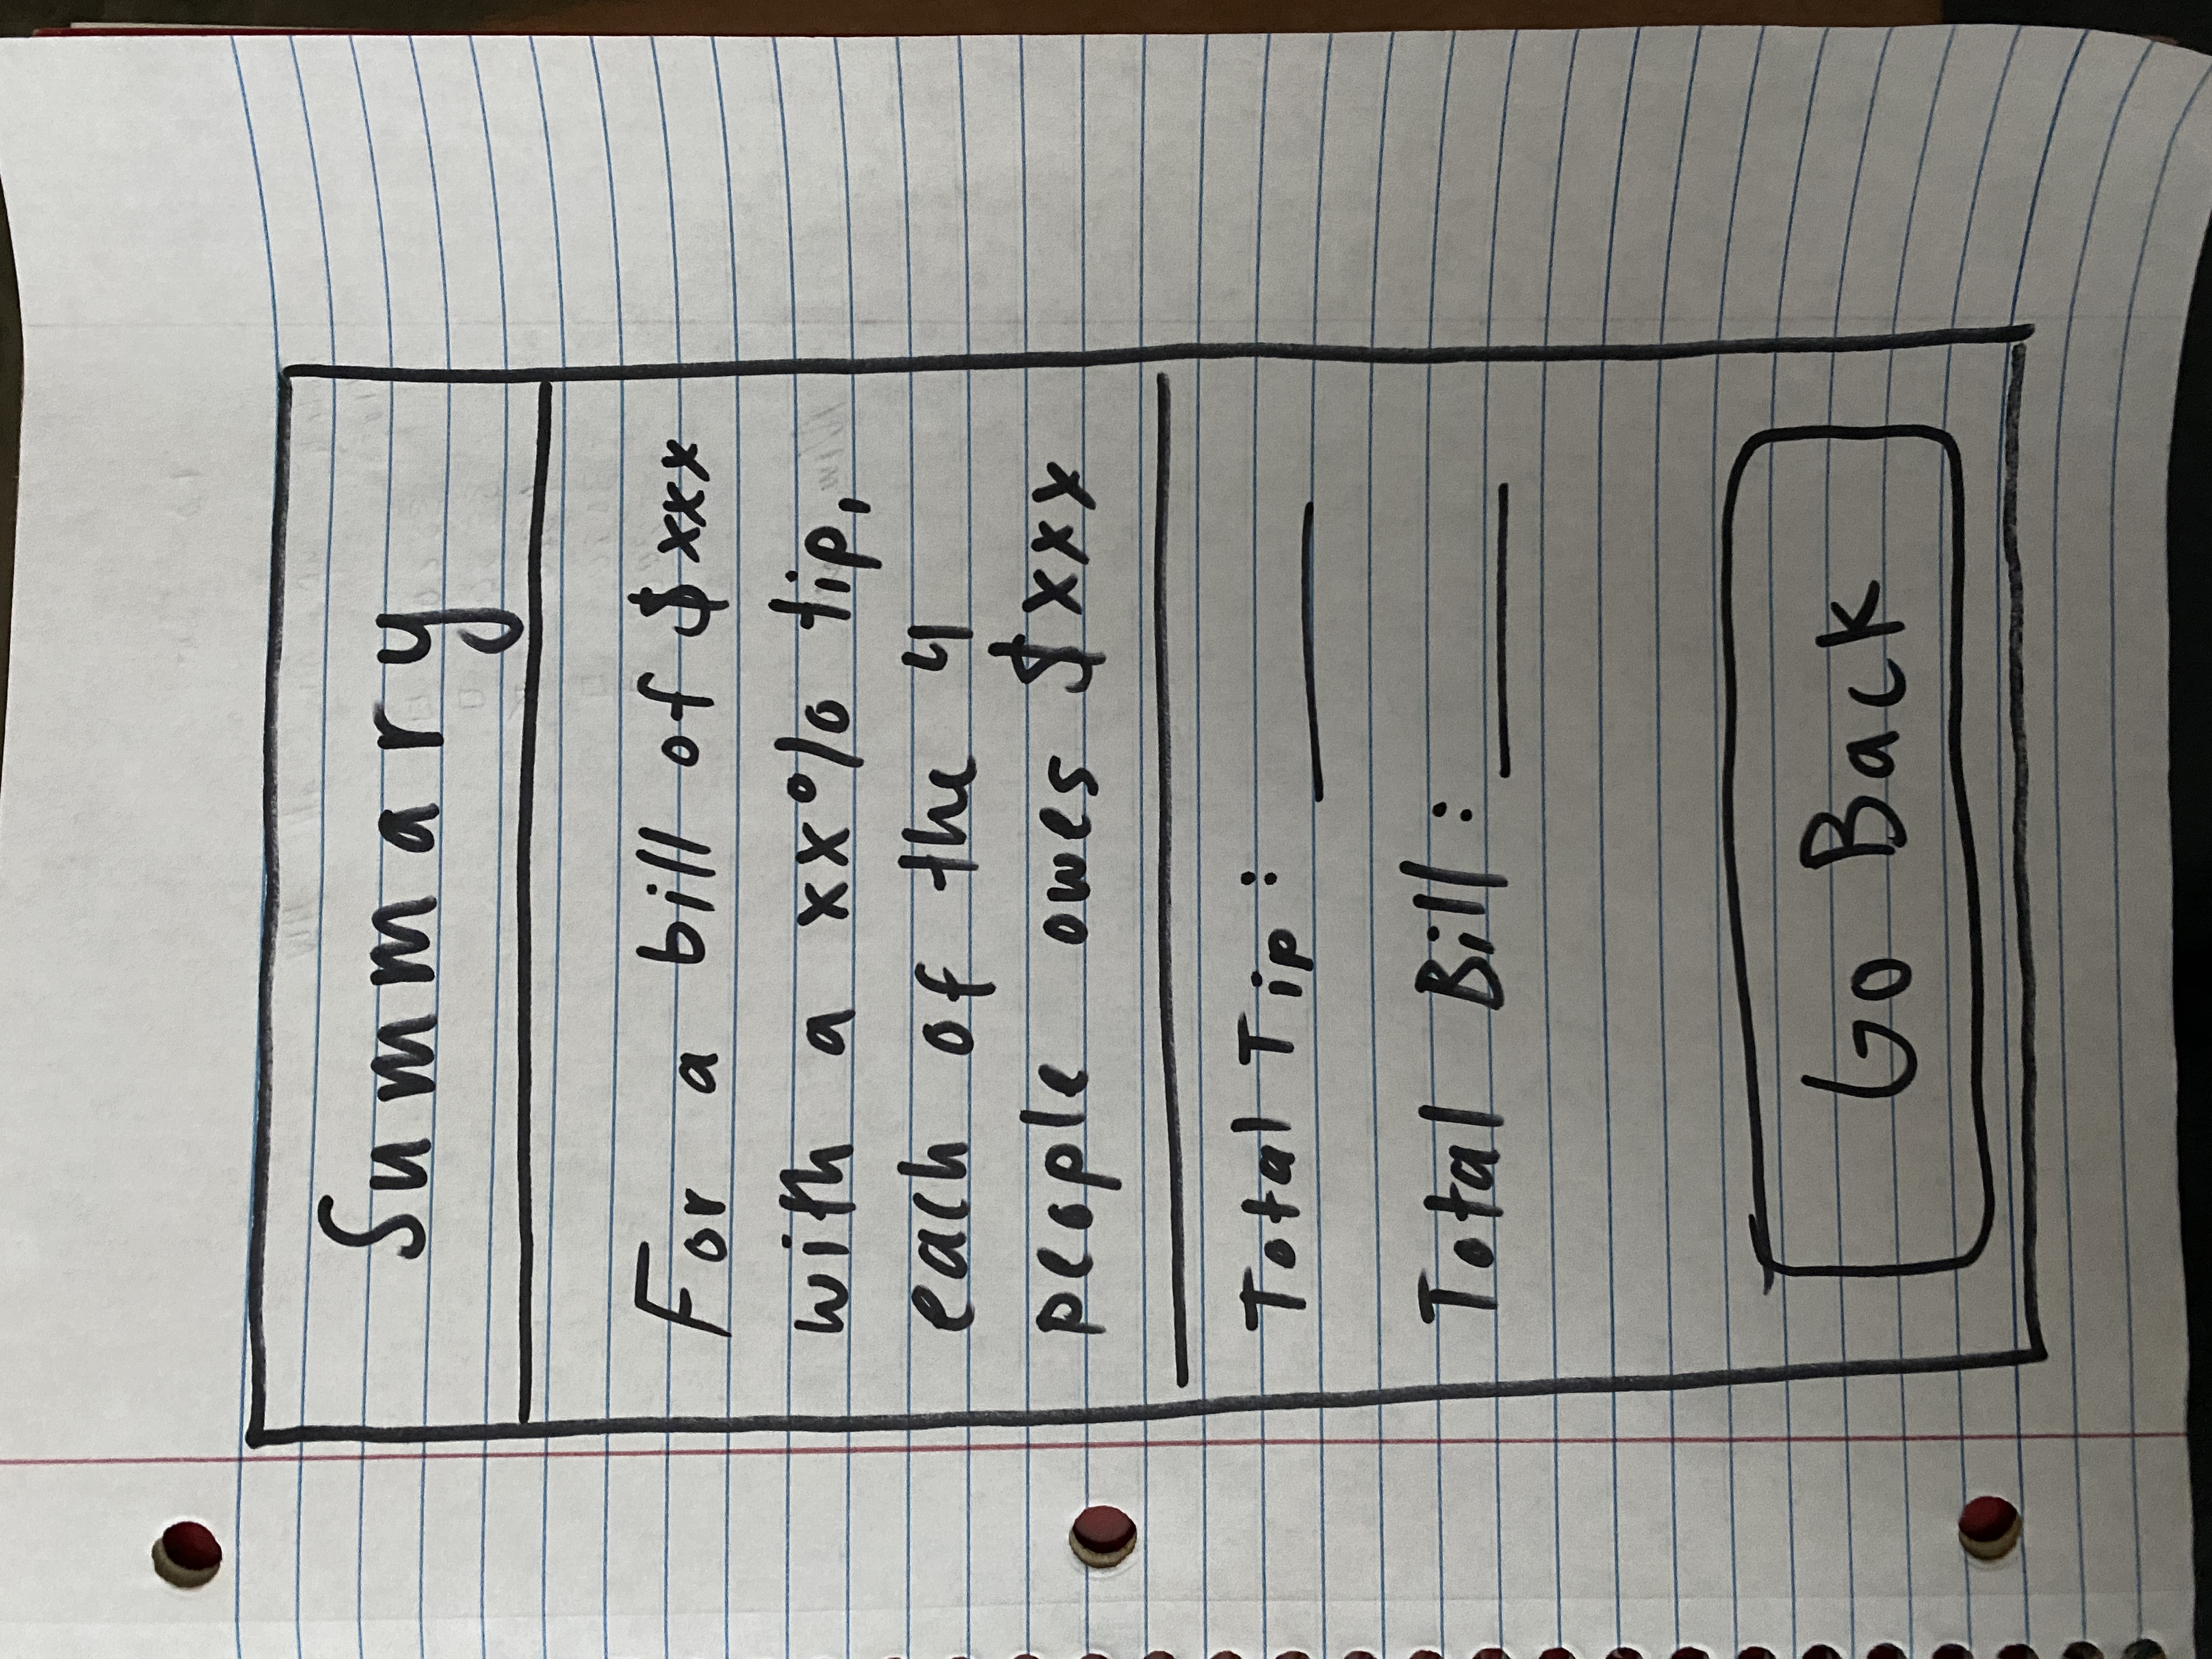 Summary
For a bill of $xxx
with a xx% tip,
each of the 4
people owes $xxx
Total Tip: ______
Total Bill: ______
Go Back